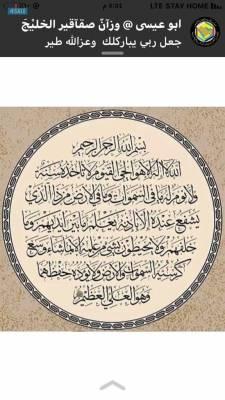 LTE STAY HOME
ابو عيسى @ وزآنّ صقآقير الخليْجَ
جعل ربي يباركلك وعزالله طير
بسم الله الرحمن الرحيم
الله لا إله إلا هو الحي القيوم لا تأخذه سنة
ولا نوم له ما في السموات وما في الأرض من ذا الذي
يشفع عنده إلا بإذنه يعلم ما بين أيديهم وما
خلفهم ولا يحيطون بشيء من علمه إلا بما شاء وسع
كرسيه السموات والأرض ولا يؤده حفظهما
وهو العلي العظيم